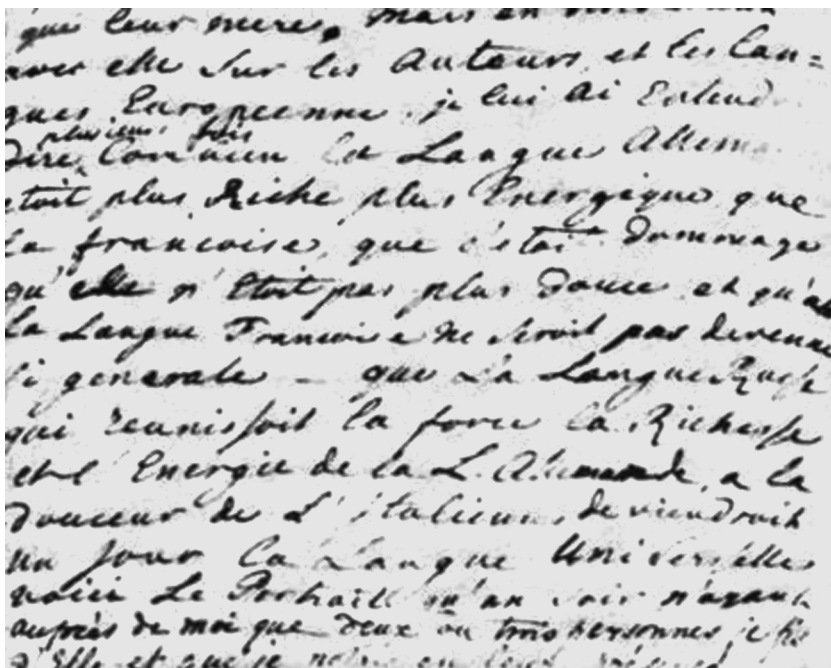 que leur mere, mais en
avec elle sur les Auteurs, et les Lan=
gues Europeenne, je lui ai Entend
plusieurs fois
dire Combien la Langue Allem
etoit plus Riche plus Energique que
la francoise, que c'etoit dommage
qu'elle n'etoit pas plus douce et qu'a
la Langue Francoise ne seroit pas devenue
si generale - que La Langue Russe
qui reunissoit la force la Richesse
et l'Energie de la L. Alemande, a la
douceur de L'italienne, deviendroit
un jour la Langue Universelle
voici Le Portrait qu'un soir n'ayant
auprès de moi que deux ou trois personnes je fis
d'Elle et que je